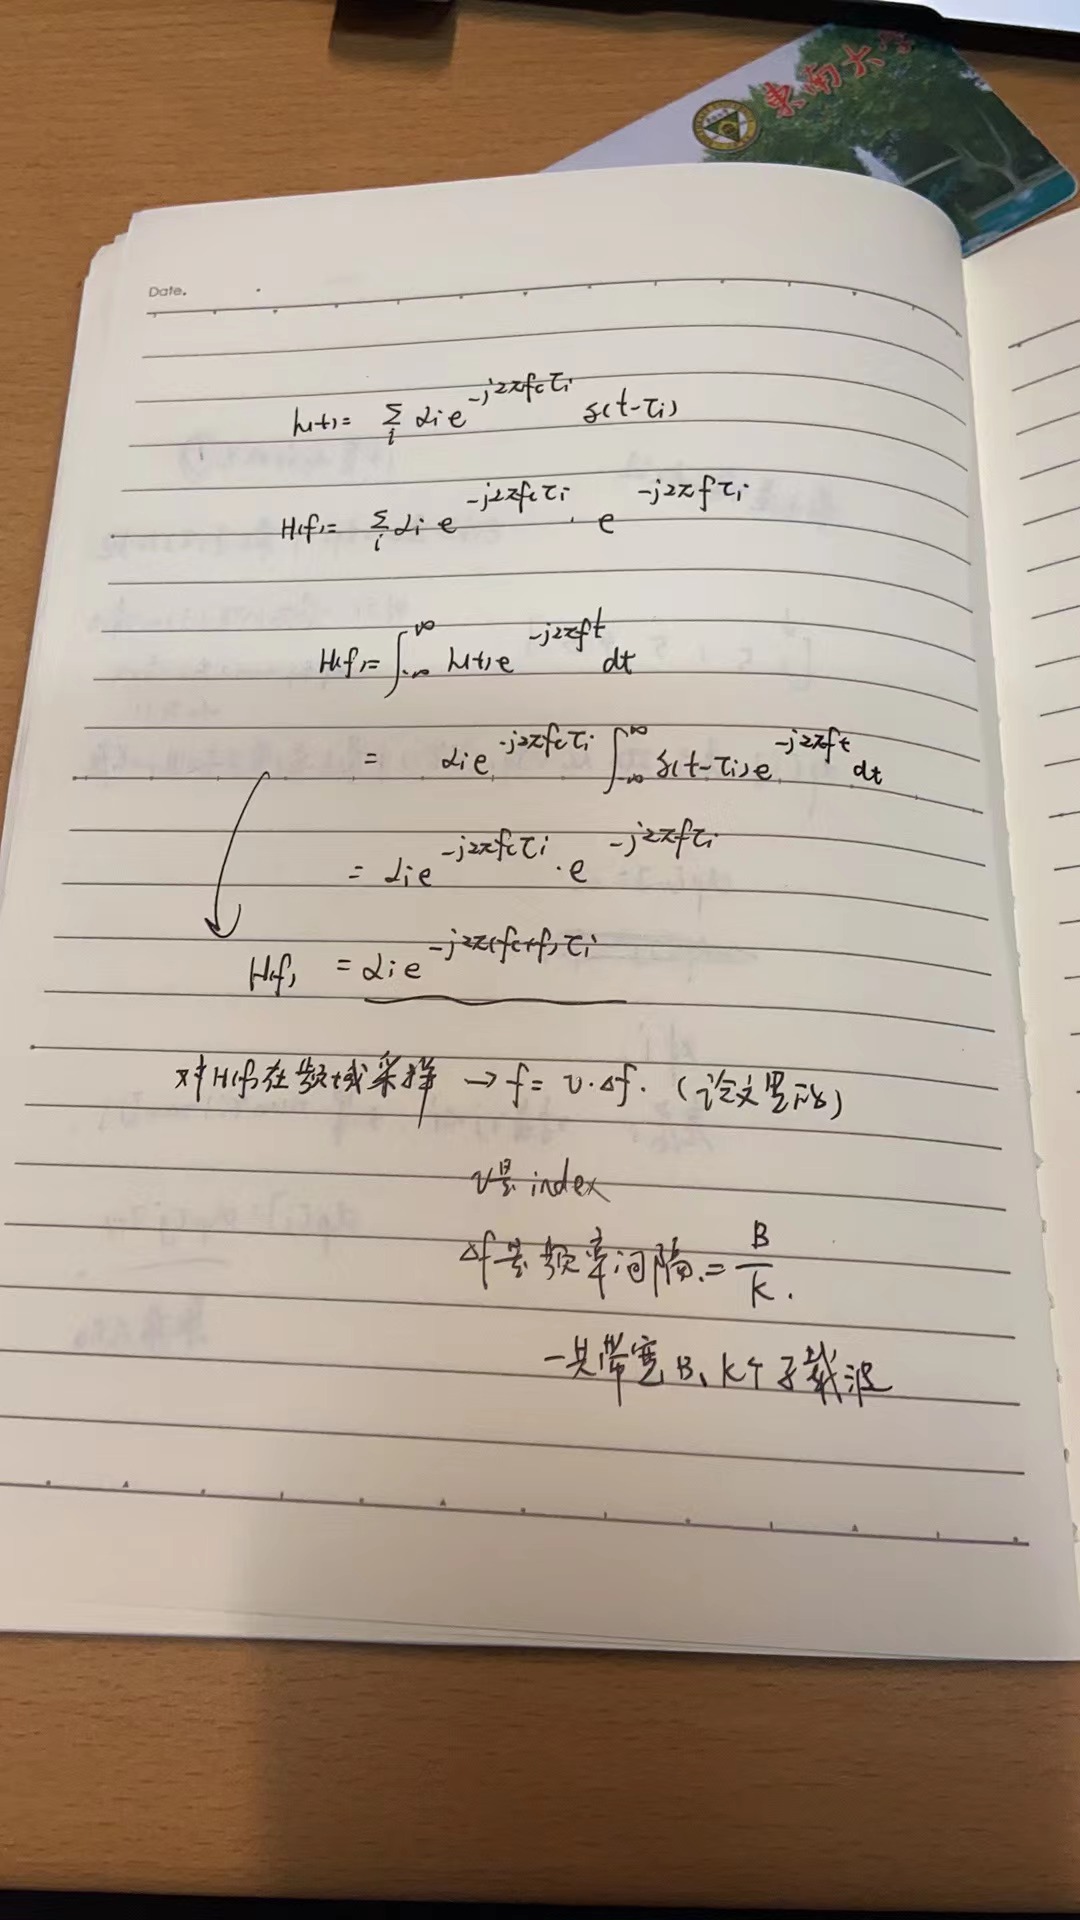 東南大学
Date.
h(t)= Σ_i α_i e^{-j2πf_cτ_i} δ(t-τ_i)
H(f)= Σ_i α_i e^{-j2πf_cτ_i} · e^{-j2πfτ_i}
H(f)= ∫_{-∞}^{∞} h(t) e^{-j2πft} dt
= α_i e^{-j2πf_cτ_i} ∫_{-∞}^{∞} δ(t-τ_i) e^{-j2πft} dt
= α_i e^{-j2πf_cτ_i} · e^{-j2πfτ_i}
H(f) = α_i e^{-j2π(f_c+f)τ_i}
对H(f)在频域采样 → f = v·Δf. (论文里的)
v是index
Δf是频率间隔.= B/K.
一共带宽B、K个子载波